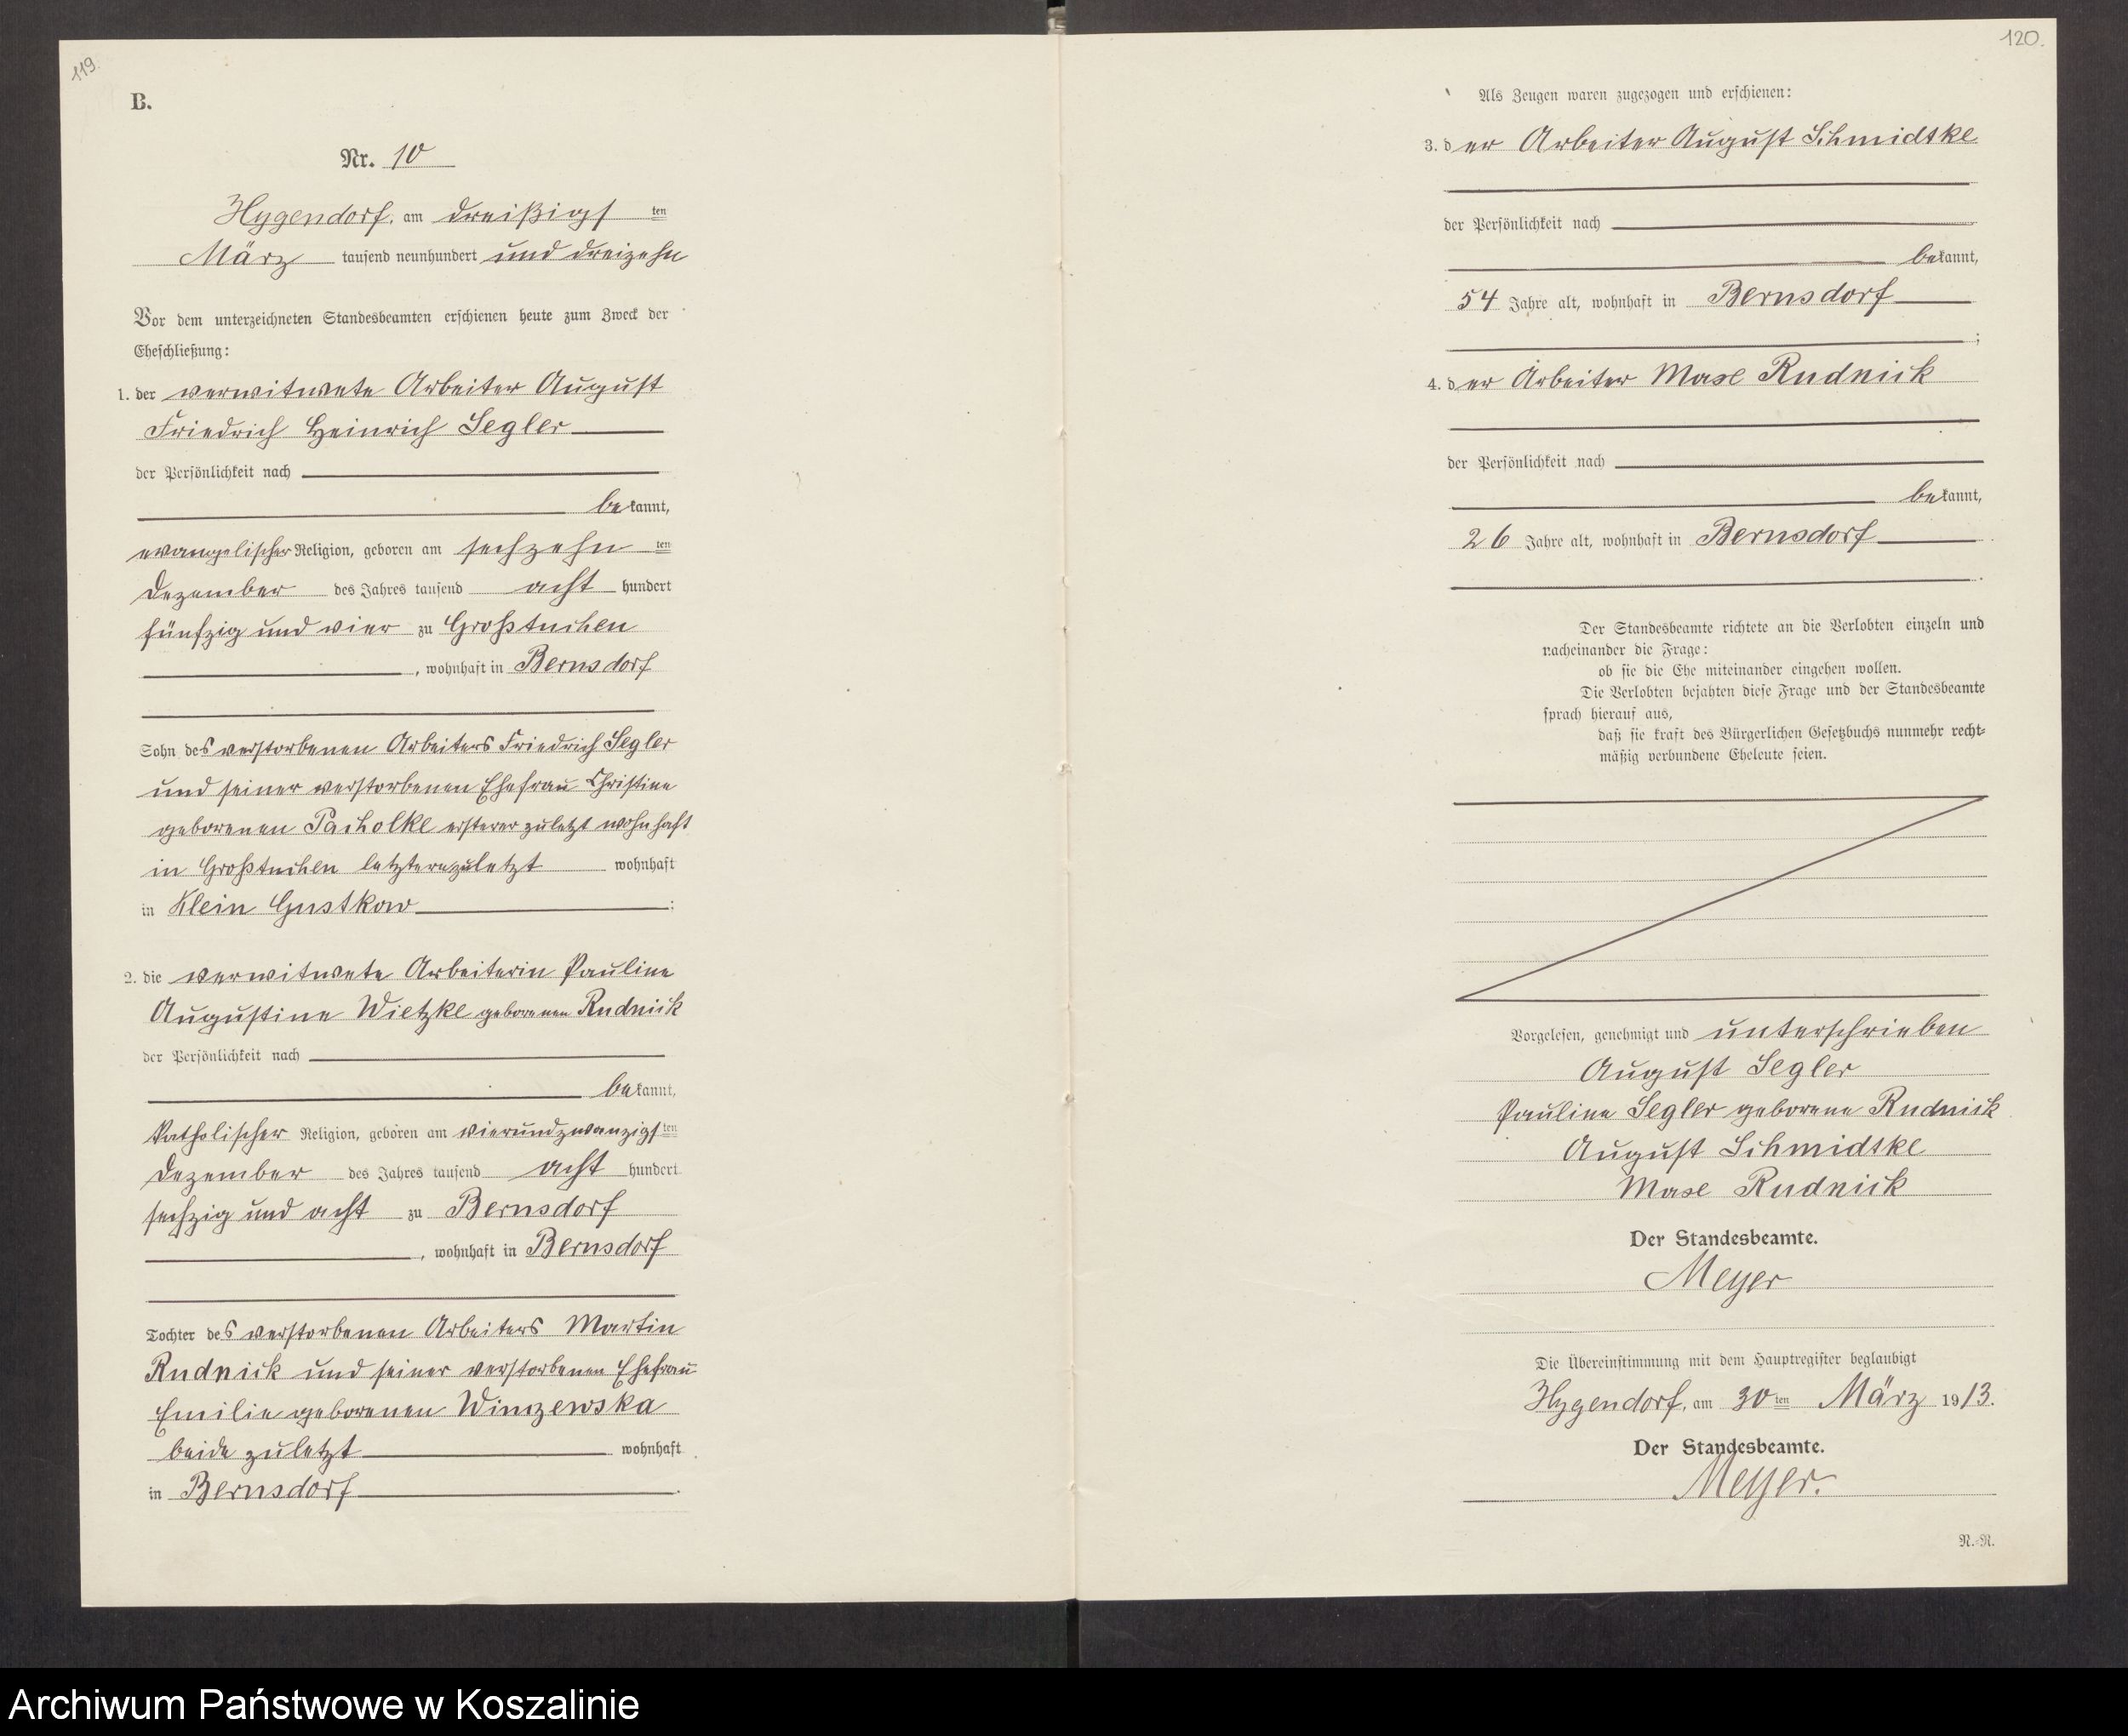 119.
B.
Nr. 10
Hygendorf, am dreißigsten
März tausend neunhundert und dreizehn
Vor dem unterzeichneten Standesbeamten erschienen heute zum Zweck der
Eheschließung:
1. der verwitwete Arbeiter August
Friedrich Heinrich Segler
der Persönlichkeit nach
bekannt,
evangelischer Religion, geboren am sechzehnten
Dezember des Jahres tausend acht hundert
fünfzig und vier zu Großtuchen
, wohnhaft in Bernsdorf
Sohn des verstorbenen Arbeiters Friedrich Segler
und seiner verstorbenen Ehefrau Christine
geborenen Pacholke ersterer zuletzt wohnhaft
in Großtuchen letztere zuletzt wohnhaft
in Klein Gustkow ;
2. die verwitwete Arbeiterin Pauline
Augustine Wietzke geborenen Rudnick
der Persönlichkeit nach
bekannt,
katholischer Religion, geboren am vierundzwanzigsten
Dezember des Jahres tausend acht hundert
sechzig und acht zu Bernsdorf
, wohnhaft in Bernsdorf
Tochter des verstorbenen Arbeiters Martin
Rudnick und seiner verstorbenen Ehefrau
Emilie geborenen
beide zuletzt wohnhaft
in Bernsdorf .
120.
Als Zeugen waren zugezogen und erschienen:
3. der Arbeiter August Schmidtke
der Persönlichkeit nach
bekannt,
54 Jahre alt, wohnhaft in Bernsdorf
;
4. der Arbeiter Max Rudnick
der Persönlichkeit nach
bekannt,
26 Jahre alt, wohnhaft in Bernsdorf
.
Der Standesbeamte richtete an die Verlobten einzeln und
nacheinander die Frage:
ob sie die Ehe miteinander eingehen wollen.
Die Verlobten bejahten diese Frage und der Standesbeamte
sprach hierauf aus,
daß sie kraft des Bürgerlichen Gesetzbuchs nunmehr recht-
mäßig verbundene Eheleute seien.
Vorgelesen, genehmigt und unterschrieben
August Segler
Pauline Segler geborene Rudnick
August Schmidtke
Max Rudnick
Der Standesbeamte.
Meyer
Die Übereinstimmung mit dem Hauptregister beglaubigt
Hygendorf, am 30ten März 1913.
Der Standesbeamte.
Meyer.
N.-N.
Archiwum Państwowe w Koszalinie